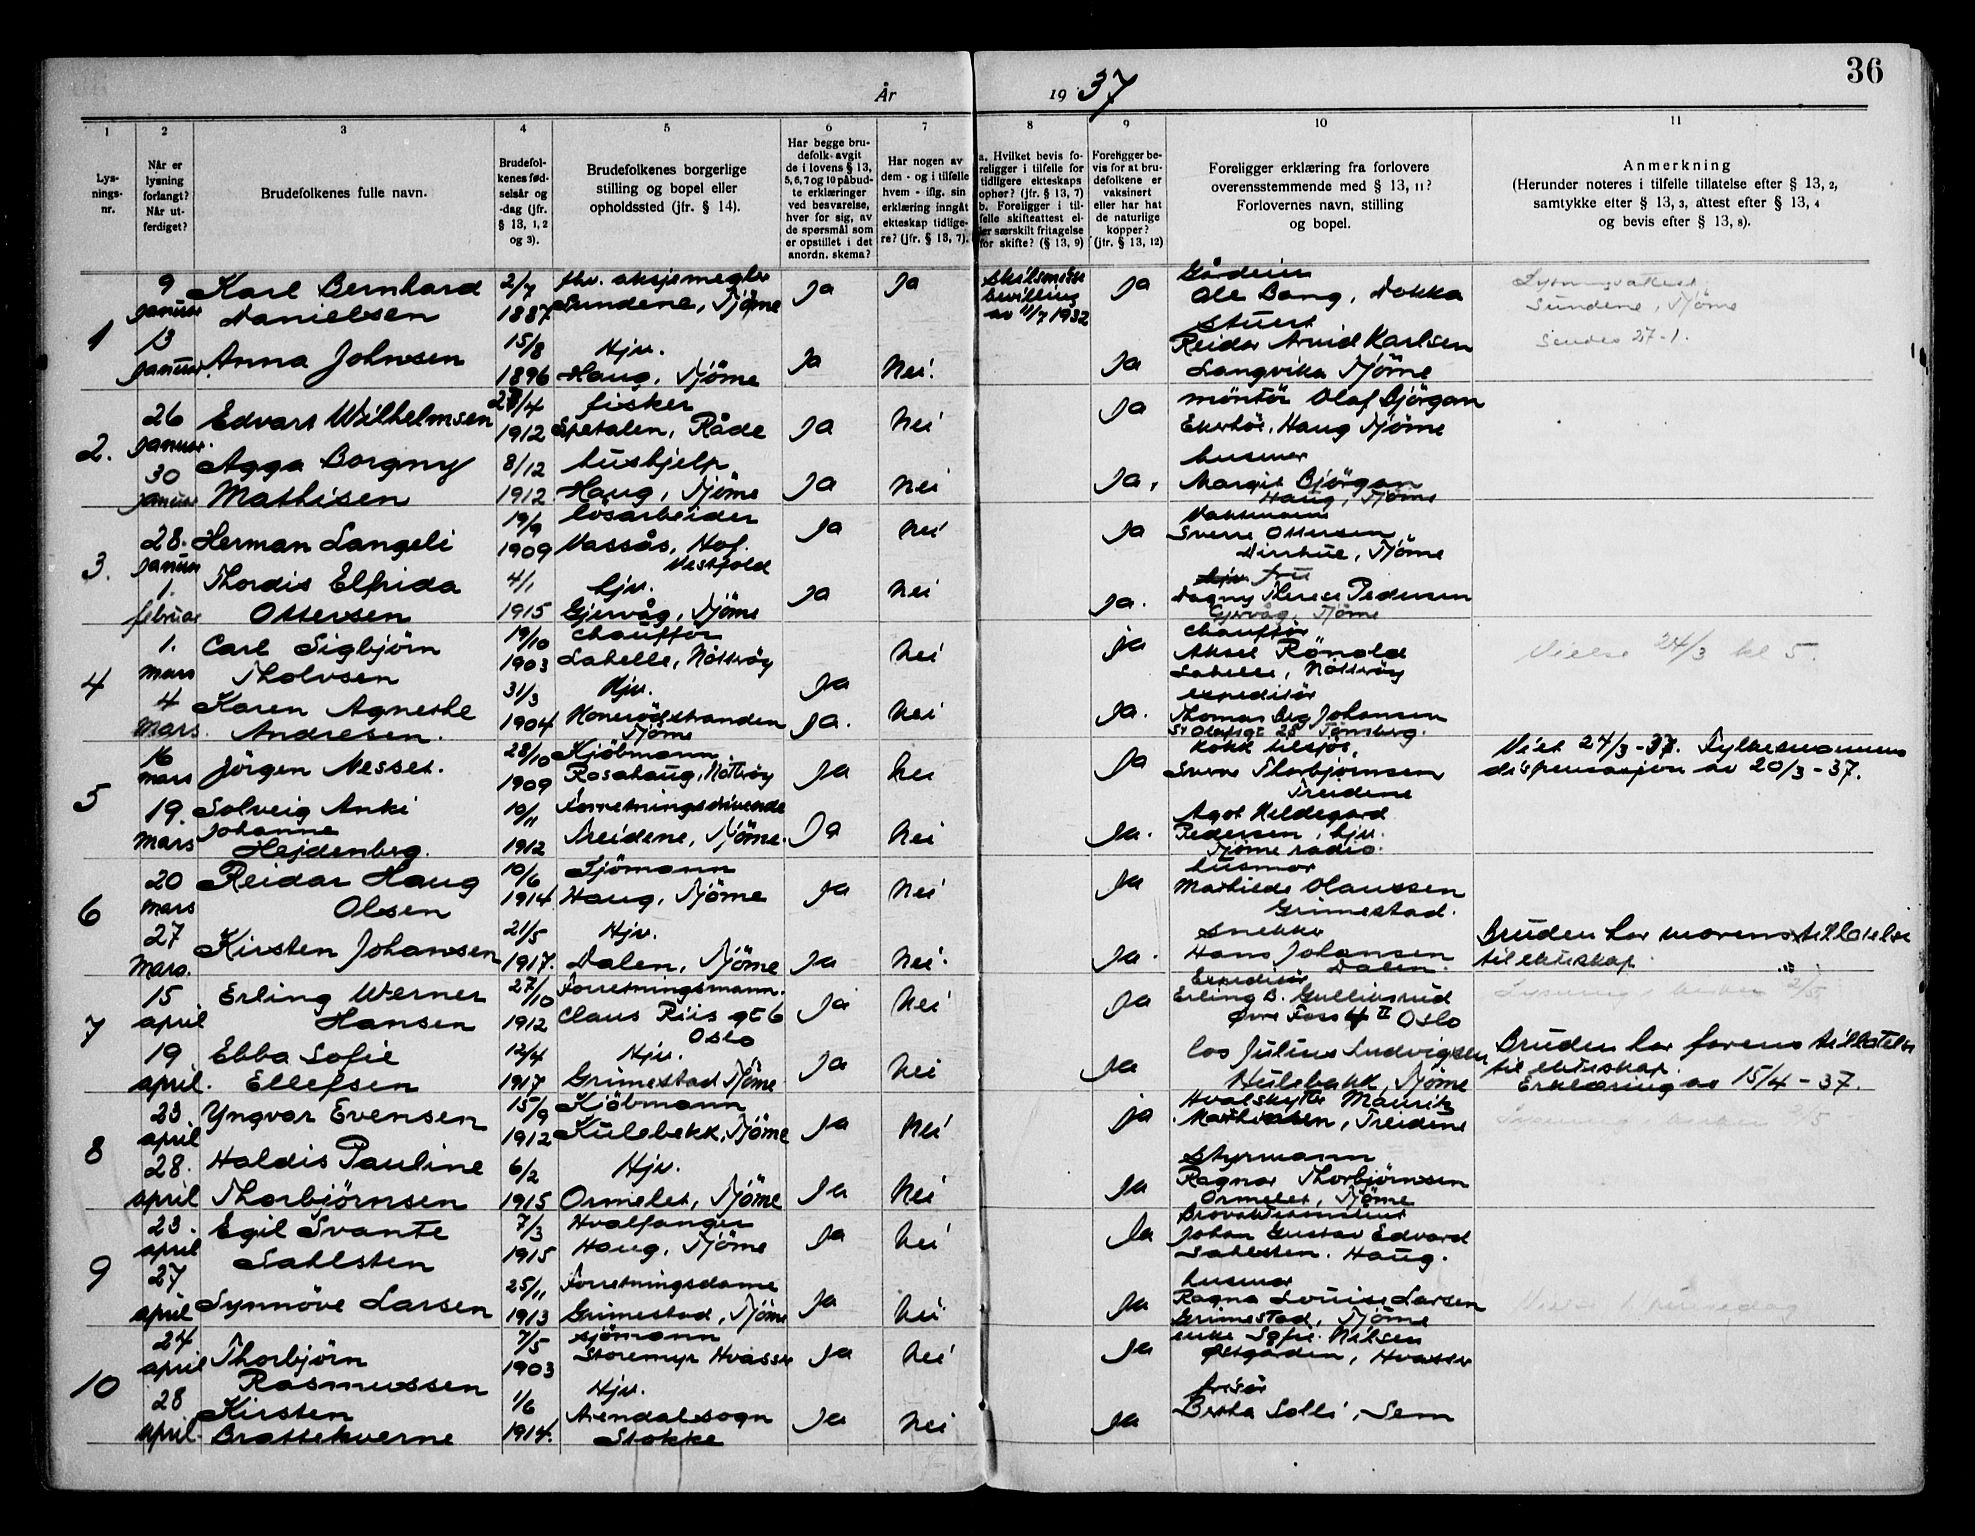 36
År 1937
1
2
3
4
5
6
7
8
9
10
11
Lys-
nings-
nr.
Når er
lysning
forlangt?
Når ut-
ferdiget?
Brudefolkenes fulle navn.
Brudefol-
kenes fød-
selsår og
-dag (jfr.
§ 13, 1, 2
og 3).
Brudefolkenes borgerlige
stilling og bopel eller
opholdssted (jfr. § 14).
Har begge bru-
defolk avgit
de i lovens § 13,
5, 6, 7 og 10 påbud-
te erklæringer
ved besvarelse,
hver for sig, av
de spørsmål som
er opstillet i det
anordn. skema?
Har nogen av
dem - og i tilfelle
hvem - iflg. sin
erklæring inngåt
ekteskap tidlige-
re? (jfr. § 13, 7).
a. Hvilket bevis fo-
religger i tilfelle for
tidligere ekteskaps
ophør? (jfr. § 13, 7)
b. Foreligger i til-
felle skifteattest el-
ler særskilt fritagelse
for skifte? (§ 13, 9)
Foreligger be-
vis for at bru-
defolkene er
vaksinert
eller har hat
de naturlige
kopper?
(jfr. § 13, 12)
Foreligger erklæring fra forlovere
overensstemmende med § 13, 11?
Forlovernes navn, stilling
og bopel.
Anmerkning
(Herunder noteres i tilfelle tillatelse efter § 13, 2,
samtykke efter § 13, 3, attest efter § 13, 4
og bevis efter § 13, 8).
1
9 januar
Karl Bernhard
Danielsen
2/7 1887
fhv. aksjemegler
Sundene, Tjöme
Ja
Ja
Skilsmisse
bevilling
av 11/7 1932
Ja
Gårdeier
Ole Bang, Dokka
Lysningsattest
Sundene, Tjöme
Sendes 27-1.
13 januar
Anna Johnsen
15/8 1896
Hjv.
Haug, Tjöme
Ja
Nei.
Ja
Stuert
Reidar Arvid Karlsen
Langvika Tjöme
2.
26 januar
Edvart Wilhelmsen
27/4 1912
fisker
Spetalen, Råde
Ja
Nei
Ja
montör Olaf Bjørgan
Haug Tjöme
30 januar
Agga Borgny
Mathisen
8/12 1912
hushjelp
Haug, Tjöme
Ja
Nei
Ja,
husmor
Margit Bjørgan
Haug, Tjöme
3.
28. januar
Herman Langeli
19/9 1909
losarbeider
Vassås, Hof.
Vestfold
Ja
Nei
Ja
Sverre Ottersen
Tjöme
1. februar
Thordis Elfrida
Ottersen
4/1 1915
hjv.
Gjervåg, Tjöme
Ja
Nei
Ja.
fru
Dagny Therese Pedersen
Gjervåg, Tjöme
4
1. mars
Carl Sigbjörn
Tholvsen
19/10 1903
Chaufför
Labelle, Nötteröy
Ja
Nei
Ja
Chauffør
Aksel Rönold
Labelle, Nötteröy
Vielse 24/3 kl 5.
4 mars
Karen Agnethe
Andresen.
31/3 1904
Hjv.
Honerödstranden
Tjöme
Ja.
Nei
Ja.
expeditör
Thomas Berg Johansen
St Olafsgt 25 Tönsberg.
5
16 mars
Jörgen Nesset.
28/10 1909
Kjöbmann
Rosahaug, Nötteröy
Ja
Nei
Ja
kokk tilsjøs,
Sverre Thorbjørnsen
Treidene
Viet 24/3-37. Fylkesmannens
dispensasjon av 20/3-37.
19. mars
Solveig Anki
Johanne
Hejdenberg.
10/11 1912
Forretningsdrivende
Treidene, Tjöme.
Ja
Nei
Ja.
Agot Hildegard
Pedersen, hjv.
Tjöme radio.
6
20 mars
Reidar Haug
Olsen
10/6 1914
Sjömann
Haug, Tjöme
Ja
Nei
Ja
husmor
Mathilde Olaussen
Grimestad.
27 mars.
Kirsten Johansen
21/5 1917.
Hjv.
Dalen, Tjöme
Ja
Nei.
Ja.
Snekker
Hans Johansen
Dalen.
Bruden har morens tillatelse
til ekteskap.
7
15 april
Erling Werner
Hansen
27/10 1912
Forretningsmann.
Claus Riis gt 6
Oslo
Ja
Nei
Ja
Expeditör
Erling B. Gulliksrud
Øvre Foss 4 II Oslo
2/5
19 april.
Ebba Sofie
Ellefsen
12/4 1917
Hjv.
Grimestad Tjöme
Ja
Nei
Ja
los Julius Ludvigsen
Hulebakk, Tjöme
Bruden har farens tillatelse
til ekteskap.
Erklæring av 15/4-37.
8
23. april
Yngvar Evensen
15/9 1912
Kjöbmann
Kulebekk, Tjöme
Ja
Nei
ja.
Hvalskytter Mauritz
Mathiesen, Treidene
28. april
Haldis Pauline
Thorbjörnsen
6/2 1915
Hjv.
Ormelet, Tjöme
Ja
Nei
Ja
Styrmann
Ragnar Thorbjørnsen
Ormelet, Tjöme
9
23. april
Egil Svante
Sahlsten
7/3 1915
Hvalfanger
Haug, Tjöme
Ja
Nei
Ja
Johan Gustav Edvard
Sahlsten. Haug.
27 april
Synnöve Larsen
25/11 1913
Forretningsdame
Grimestad, Tjöme
Ja
Nei
Ja
husmor
Ragna Louise Larsen
Grimestad, Tjöme
10
24 april
Thorbjörn
Rasmussen
7/5 1903
sjömann
Storemyr Hvasser
Ja
Nei
Ja
enke Sofie Nilsen
Østgården, Hvasser
28 april.
Kirsten
Brattekverne
1/6 1914.
Hjv.
Arendal sogn
Stokke
Ja
Nei
Ja
frisör
Berta Solli, Sem